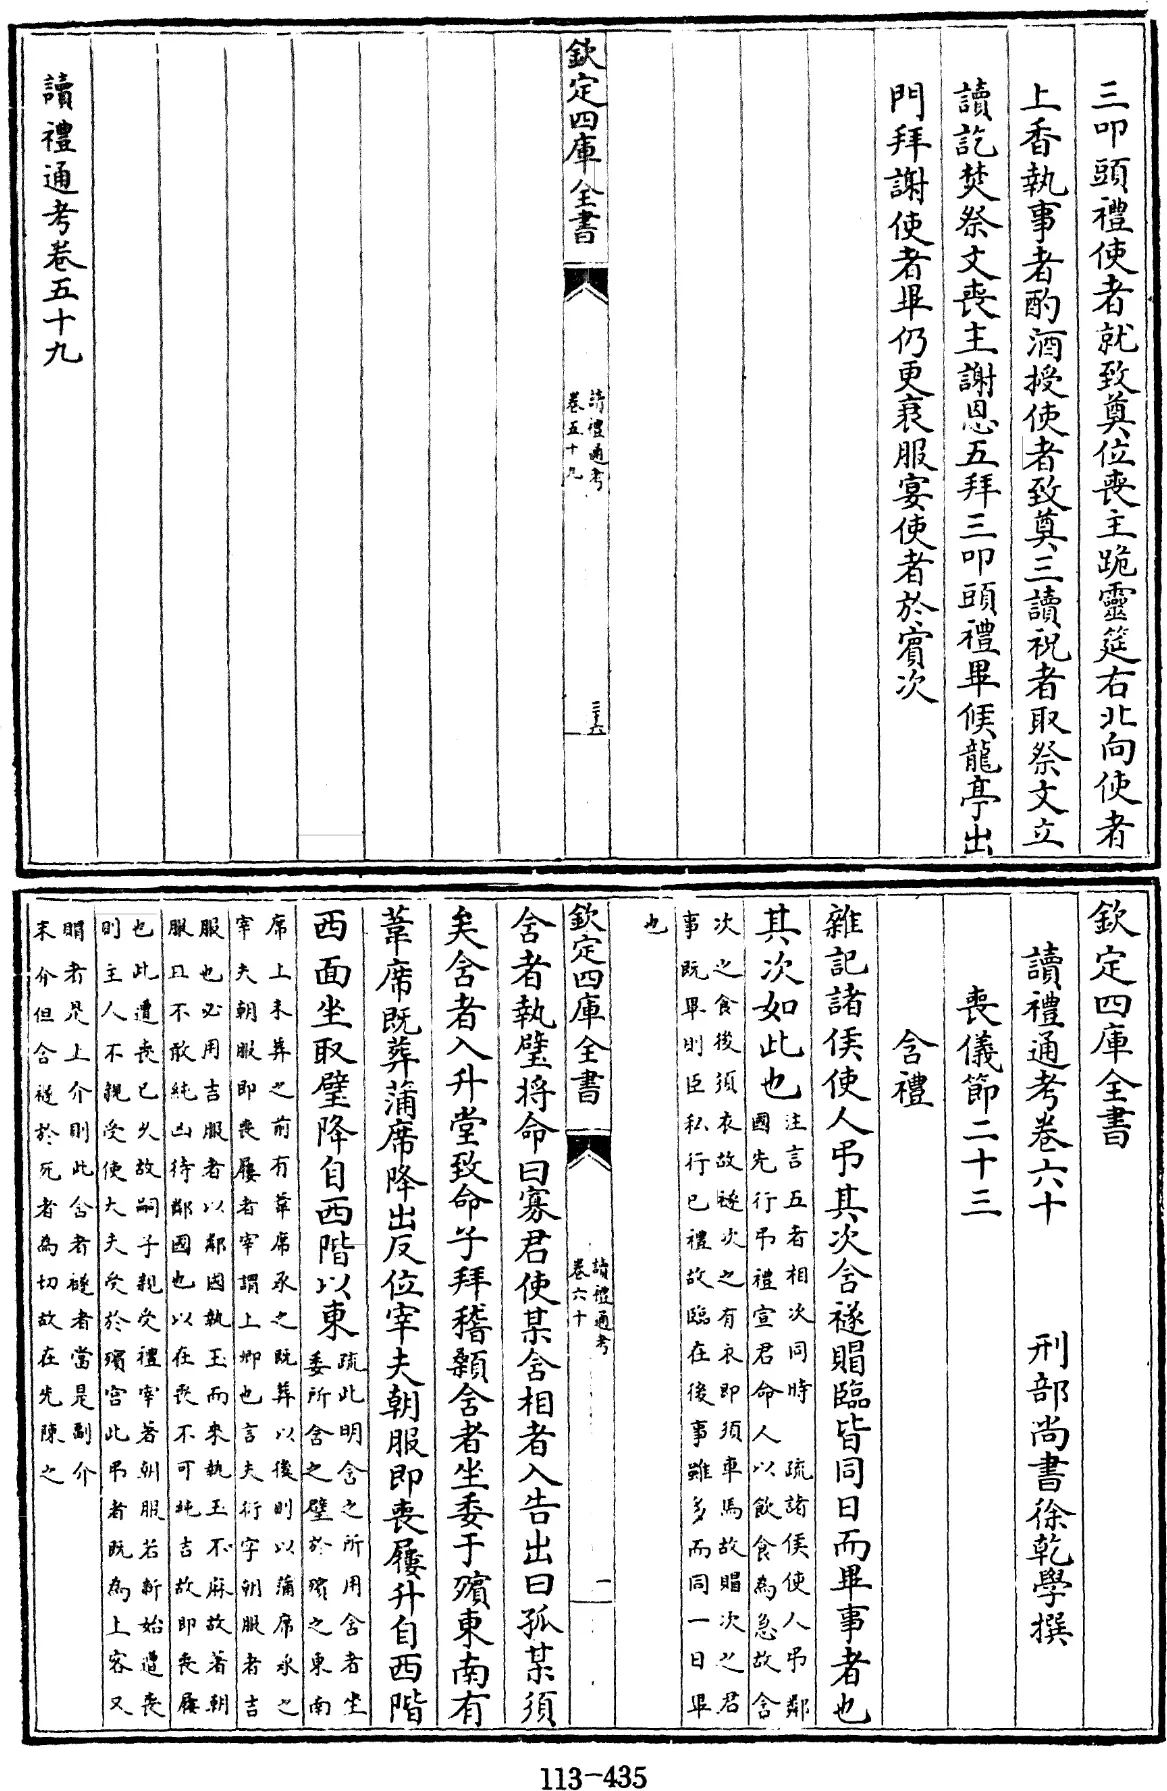 三叩頭禮使者就致奠位喪主跪靈筵右北向使者
上香執事者酌酒授使者致奠三讀祝者取祭文立
讀訖焚祭文喪主謝恩五拜三叩頭禮畢候龍亭出
門拜謝使者畢仍更衰服宴使者於賓次
欽定四庫全書
讀禮通考
卷五十九
三十六
讀禮通考卷五十九
欽定四庫全書
讀禮通考卷六十
刑部尚書徐乾學撰
喪儀節二十三
含禮
雜記諸侯使人弔其次含襚賵臨皆同日而畢事者也
其次如此也
注言五者相次同時 疏諸侯使人弔鄰
國先行弔禮宣君命人以飲食為急故含
次之食後須衣故襚次之有衣即須車馬故賵次之君
事既畢則臣私行己禮故臨在後事雖多而同一日畢
也
欽定四庫全書
讀禮通考
卷六十
一
含者執璧將命曰寡君使某含相者入告出曰孤某須
矣含者入升堂致命子拜稽顙含者坐委于殯東南有
葦席既葬蒲席降出反位宰夫朝服即喪屨升自西階
西面坐取璧降自西階以東
疏此明含之所用含者坐
委所含之璧於殯之東南
席上未葬之前有葦席承之既葬以後則以蒲席承之
宰夫朝服即喪屨者宰謂上卿也言夫衍字朝服者吉
服也必用吉服者以鄰國執玉而來執玉不麻故著朝
服且不敢純凶待鄰國也以在喪不可純吉故即喪屨
也此遭喪已久故嗣子親受禮宰著朝服若新始遭喪
則主人不親受使大夫受於殯宮此弔者既為上客又
賵者是上介則此含者襚者當是副介
末介但含襚於死者為切故在先陳之
113-435